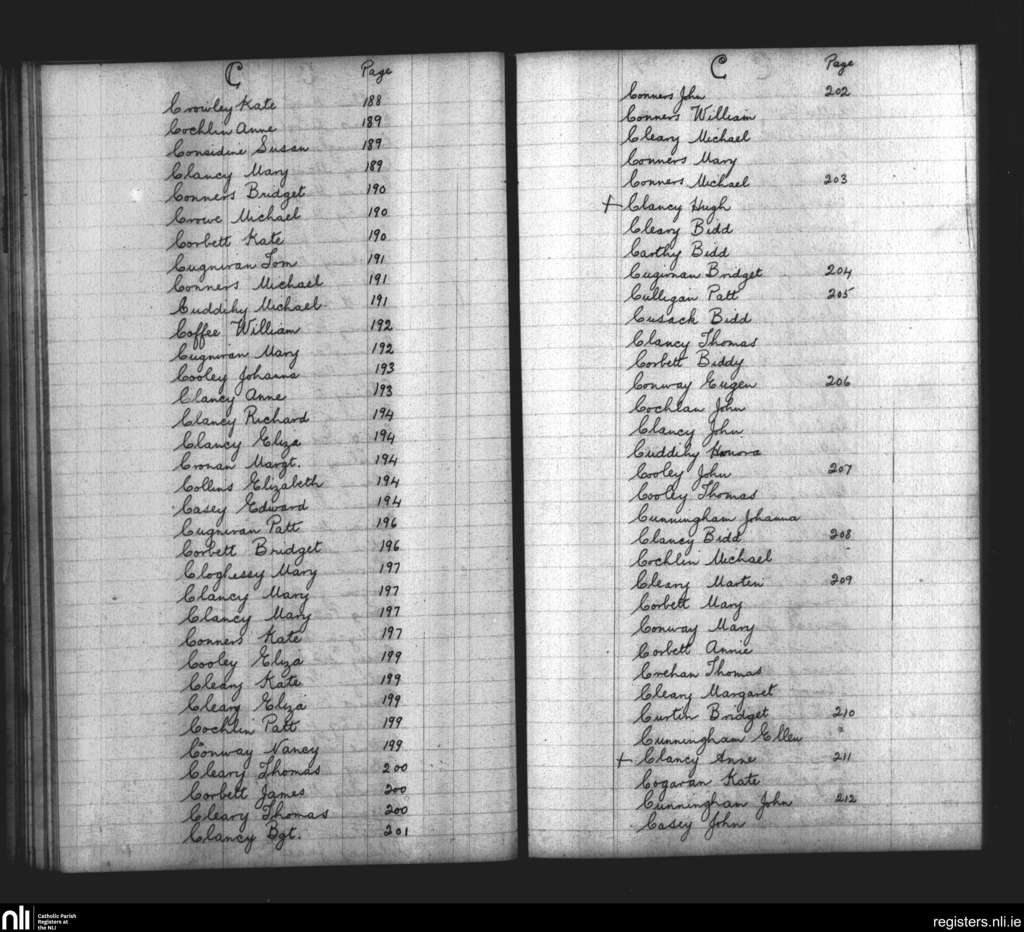 C Page
Crowley Kate 188
Cochlin Anne 189
Considine Susan 189
Clancy Mary 189
Conners Bridget 190
Crowe Michael 190
Corbett Kate 190
Cugniran Tom 191
Conners Michael 191
Cuddihy Michael 191
Coffee William 192
Cugniran Mary 192
Cooley Johanna 193
Clancy Anne 193
Clancy Richard 194
Clancy Eliza 194
Cronan Margt. 194
Collins Elizabeth 194
Casey Edward 194
Cugniran Patt 196
Corbett Bridget 196
Cloghessy Mary 197
Clancy Mary 197
Clancy Mary 197
Conners Kate 197
Cooley Eliza 199
Cleary Kate 199
Cleary Eliza 199
Cochlin Patt 199
Conway Nancy 199
Cleary Thomas 200
Corbett James 200
Cleary Thomas 200
Clancy Bgt. 201
C Page
Conners John 202
Conners William
Cleary Michael
Conners Mary
Conners Michael 203
+ Clancy Hugh
Cleary Bidd
Carthy Bidd
Cugirnan Bridget 204
Culligan Patt 205
Cusack Bidd
Clancy Thomas
Corbett Biddy
Conway Eugen 206
Cochlan John
Clancy John
Cuddihy Honora
Cooley John 207
Cooley Thomas
Cunningham Johanna
Clancy Bidd 208
Cochlin Michael
Cleary Martin 209
Corbett Mary
Conway Mary
Corbett Annie
Crehan Thomas
Cleary Margaret
Curtin Bridget 210
Cunningham Ellen "
+ Clancy Anne 211
Cogavan Kate
Cunningham John 212
Casey John
nli Catholic Parish
Registers at
the NLI
registers.nli.ie